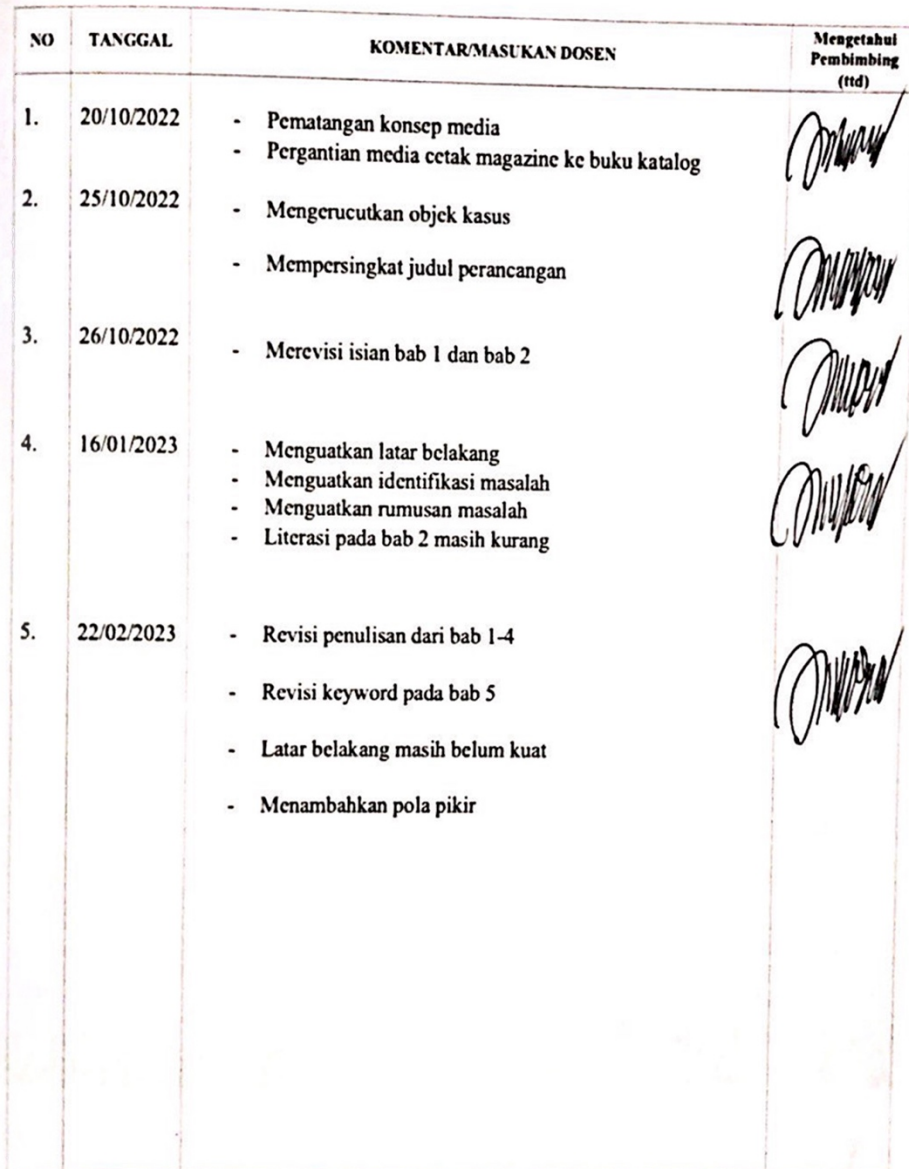 NO TANGGAL KOMENTAR/MASUKAN DOSEN Mengetahui
Pembimbing
(ttd)
1. 20/10/2022 - Pematangan konsep media
- Pergantian media cetak magazine ke buku katalog
2. 25/10/2022 - Mengerucutkan objek kasus
- Mempersingkat judul perancangan
3. 26/10/2022 - Merevisi isian bab 1 dan bab 2
4. 16/01/2023 - Menguatkan latar belakang
- Menguatkan identifikasi masalah
- Menguatkan rumusan masalah
- Literasi pada bab 2 masih kurang
5. 22/02/2023 - Revisi penulisan dari bab 1-4
- Revisi keyword pada bab 5
- Latar belakang masih belum kuat
- Menambahkan pola pikir